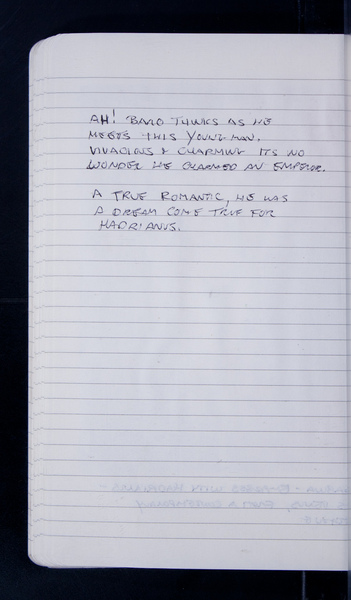 AH! BARD THINKS AS HE
MEETS THIS YOUNG MAN.
VIVACIOUS & CHARMING ITS NO
WONDER HE CHARMED AN EMPEROR.
A TRUE ROMANTIC, HE WAS
A DREAM COME TRUE FOR
HADRIANUS.